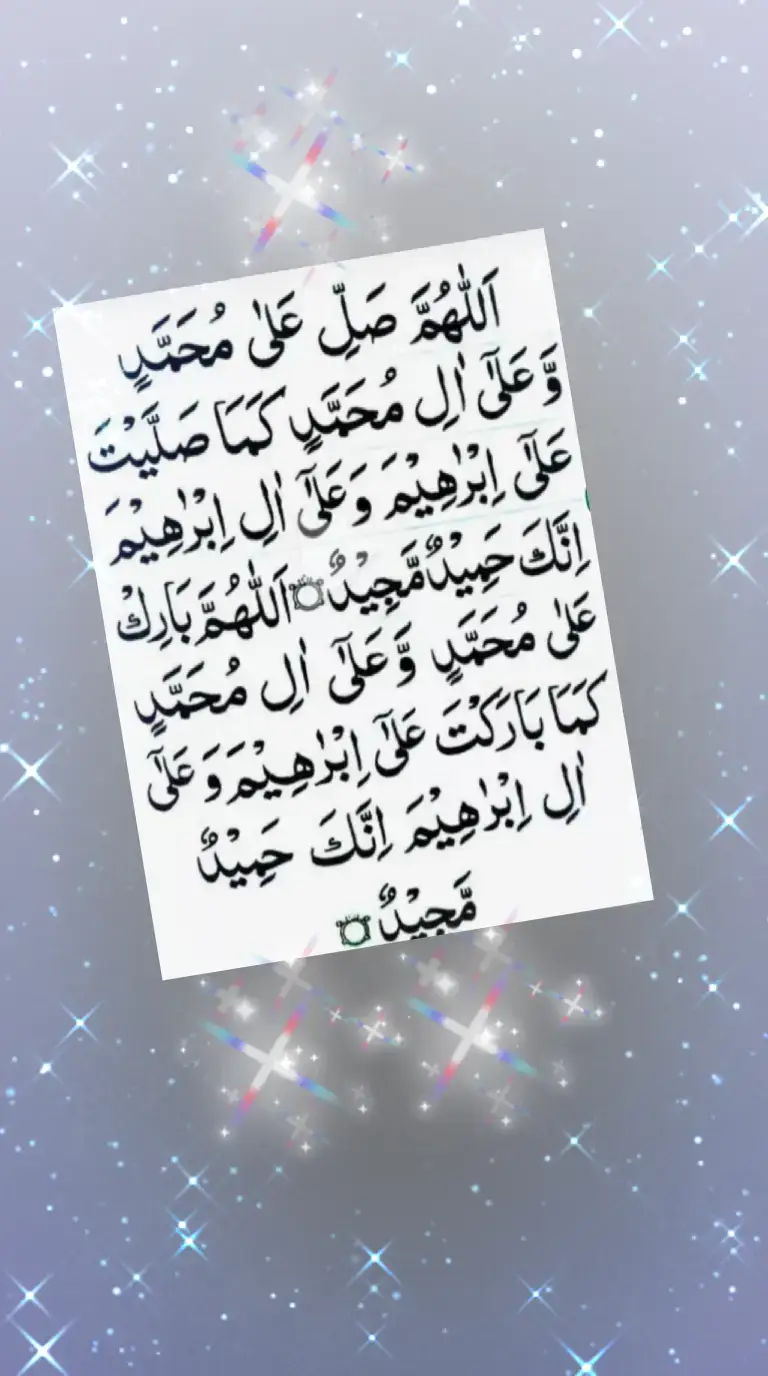 اَللّٰهُمَّ صَلِّ عَلٰى مُحَمَّدٍ
وَّ عَلٰٓى اٰلِ مُحَمَّدٍ كَمَا صَلَّيْتَ
عَلٰٓى اِبْرٰهِيْمَ وَ عَلٰٓى اٰلِ اِبْرٰهِيْمَ
اِنَّكَ حَمِيْدٌ مَّجِيْدٌ ۝ اَللّٰهُمَّ بَارِكْ
عَلٰى مُحَمَّدٍ وَّ عَلٰٓى اٰلِ مُحَمَّدٍ
كَمَا بَارَكْتَ عَلٰٓى اِبْرٰهِيْمَ وَ عَلٰٓى
اٰلِ اِبْرٰهِيْمَ اِنَّكَ حَمِيْدٌ
مَّجِيْدٌ ۝